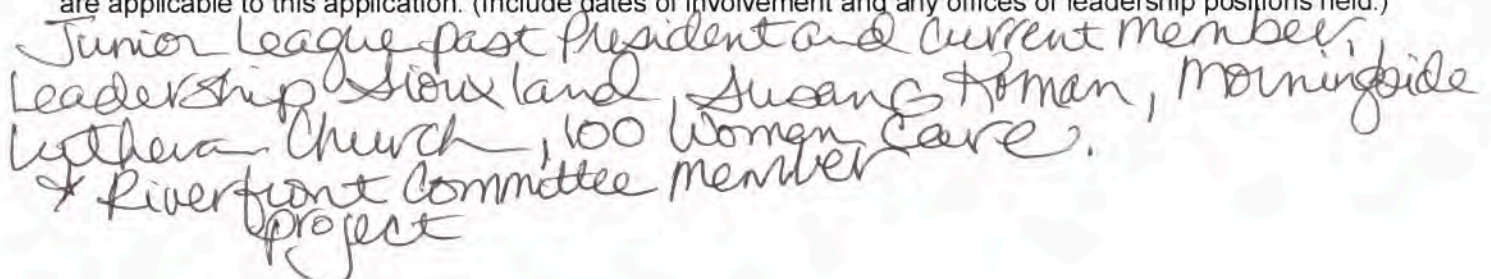 are applicable to this application. (Include dates of involvement and any offices or leadership positions held.)
Junior League past President and current member,
Leadership Siouxland, Susan G Koman, Morningside
Lutheran Church, 100 Women Care.
* Riverfront Committee member
project